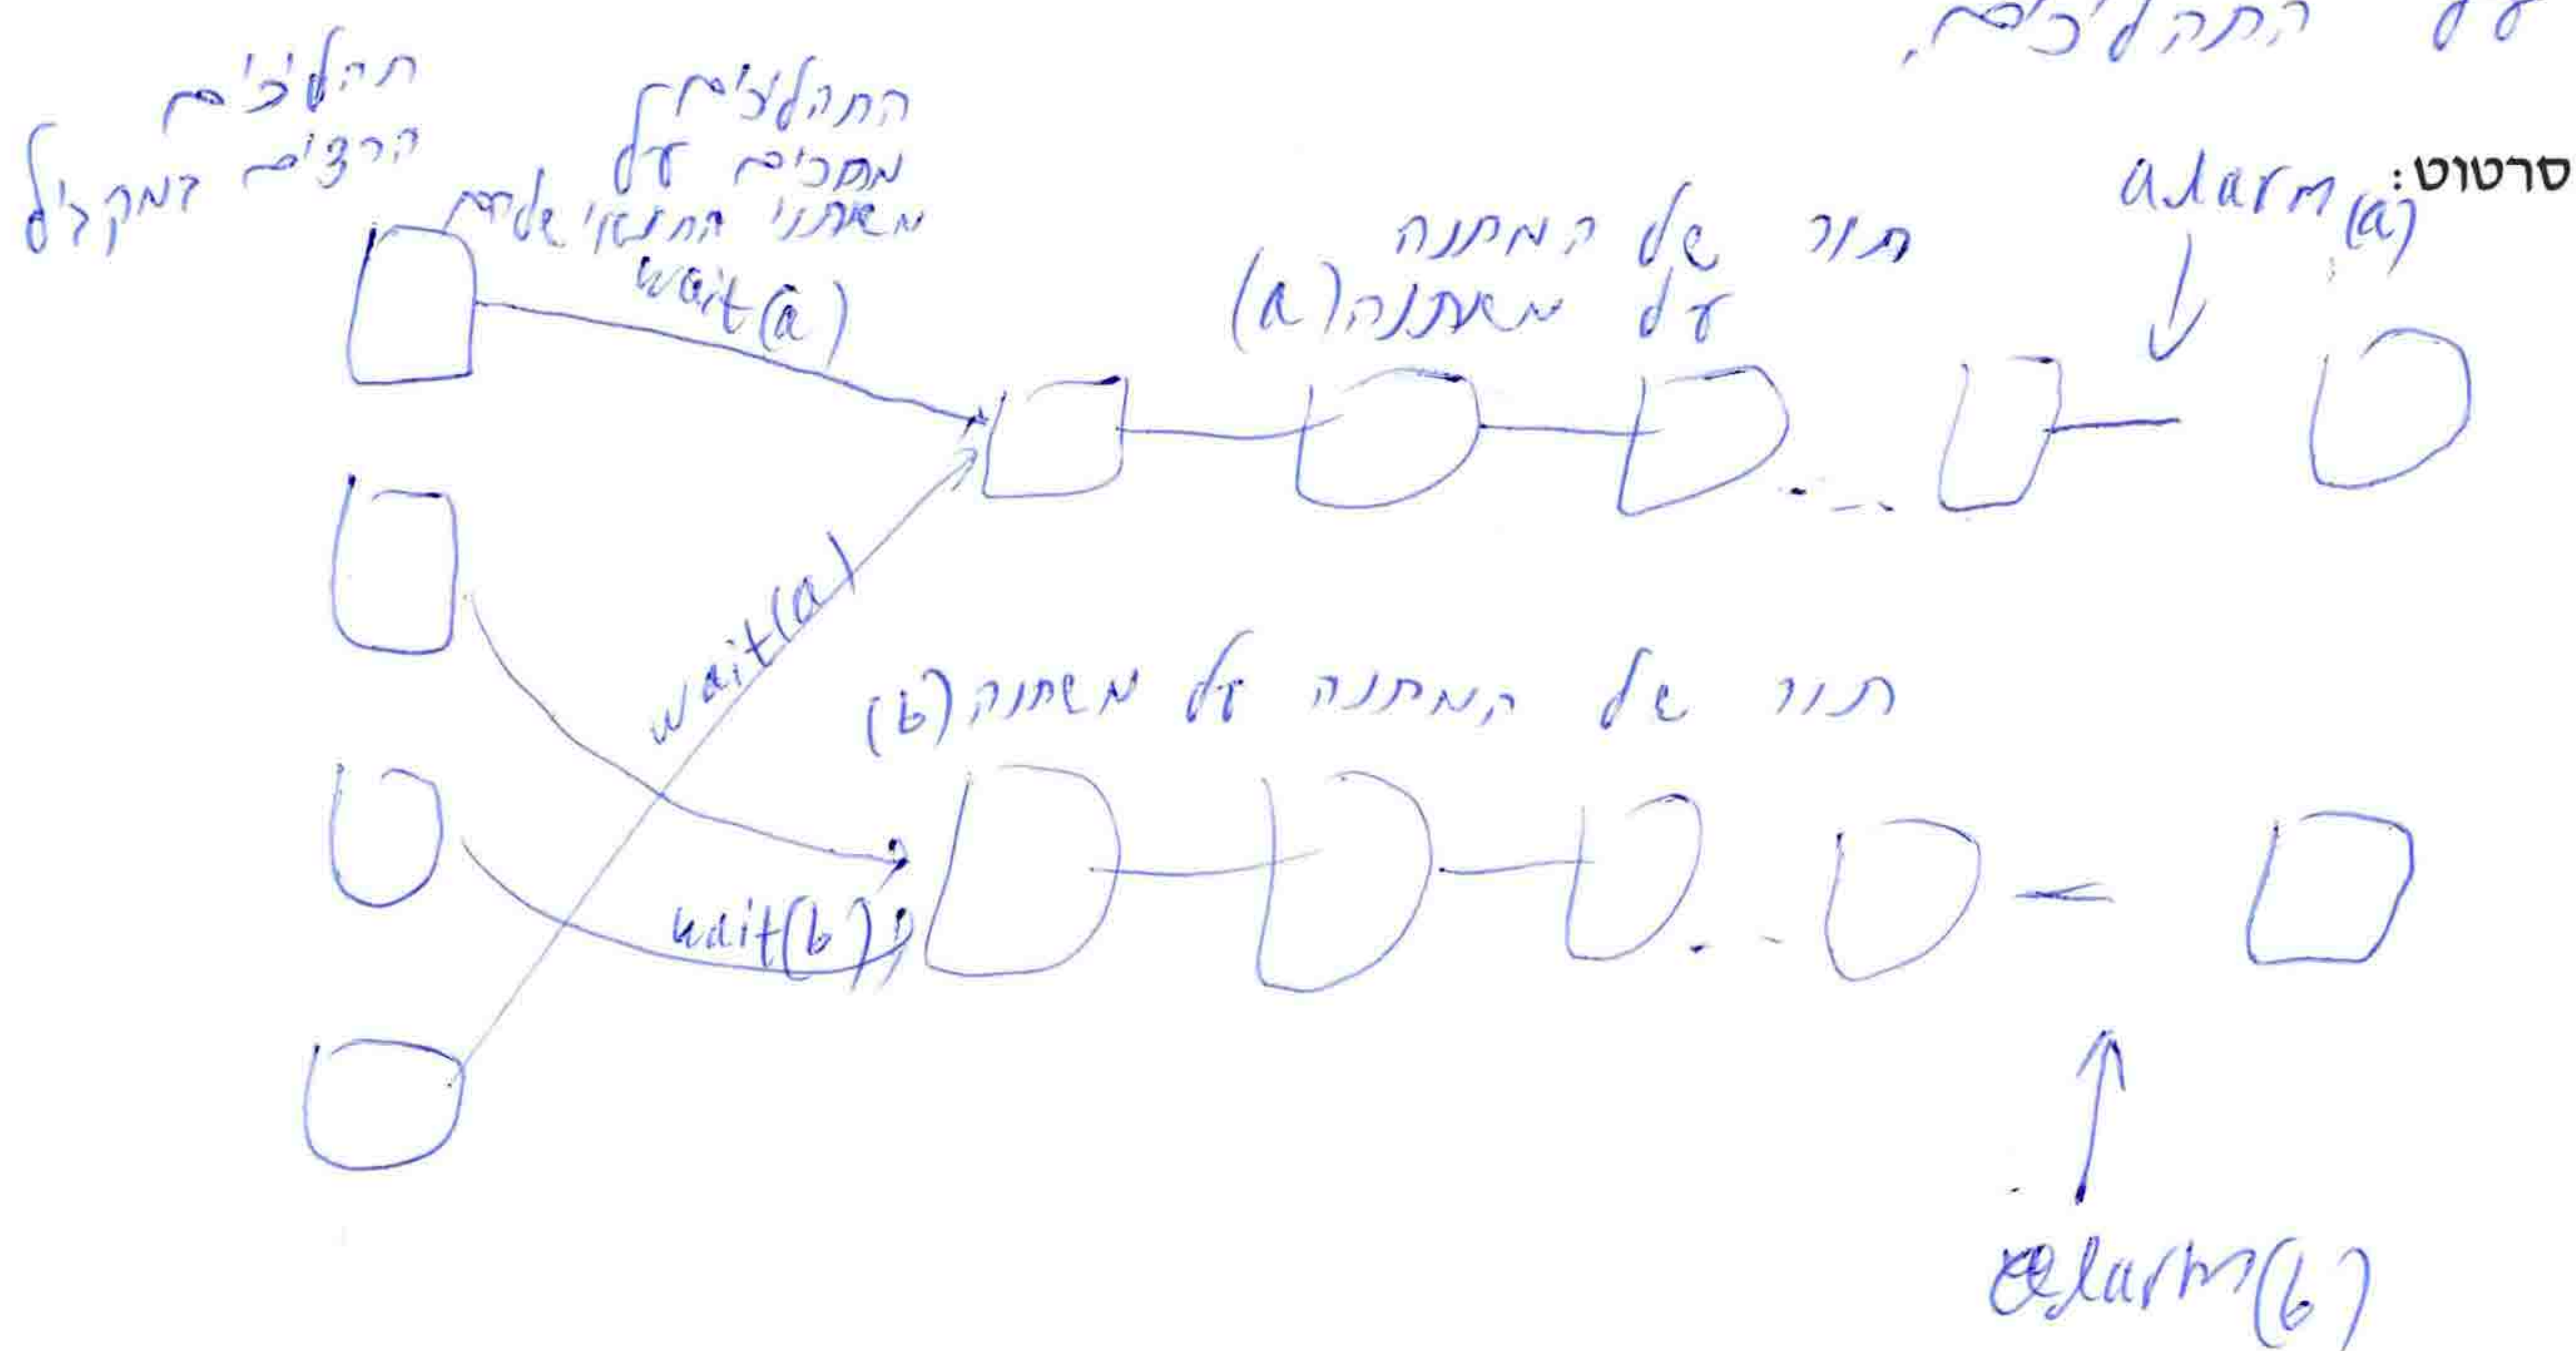 על התהליכים.
סרטוט:
alarm(a)
תהליכים
הרצים במקביל
התהליכים
מחכים על
משתני התנאי שלהם
wait(a)
תור של המתנה
על משתנה (a)
wait(a)
תור של המתנה על משתנה (b)
wait(b)
alarm(b)